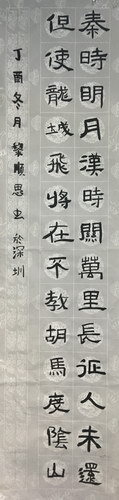 秦時明月漢時關萬里長征人未還
但使龍城飛將在不教胡馬度陰山
丁酉冬月黎順思虫於深圳